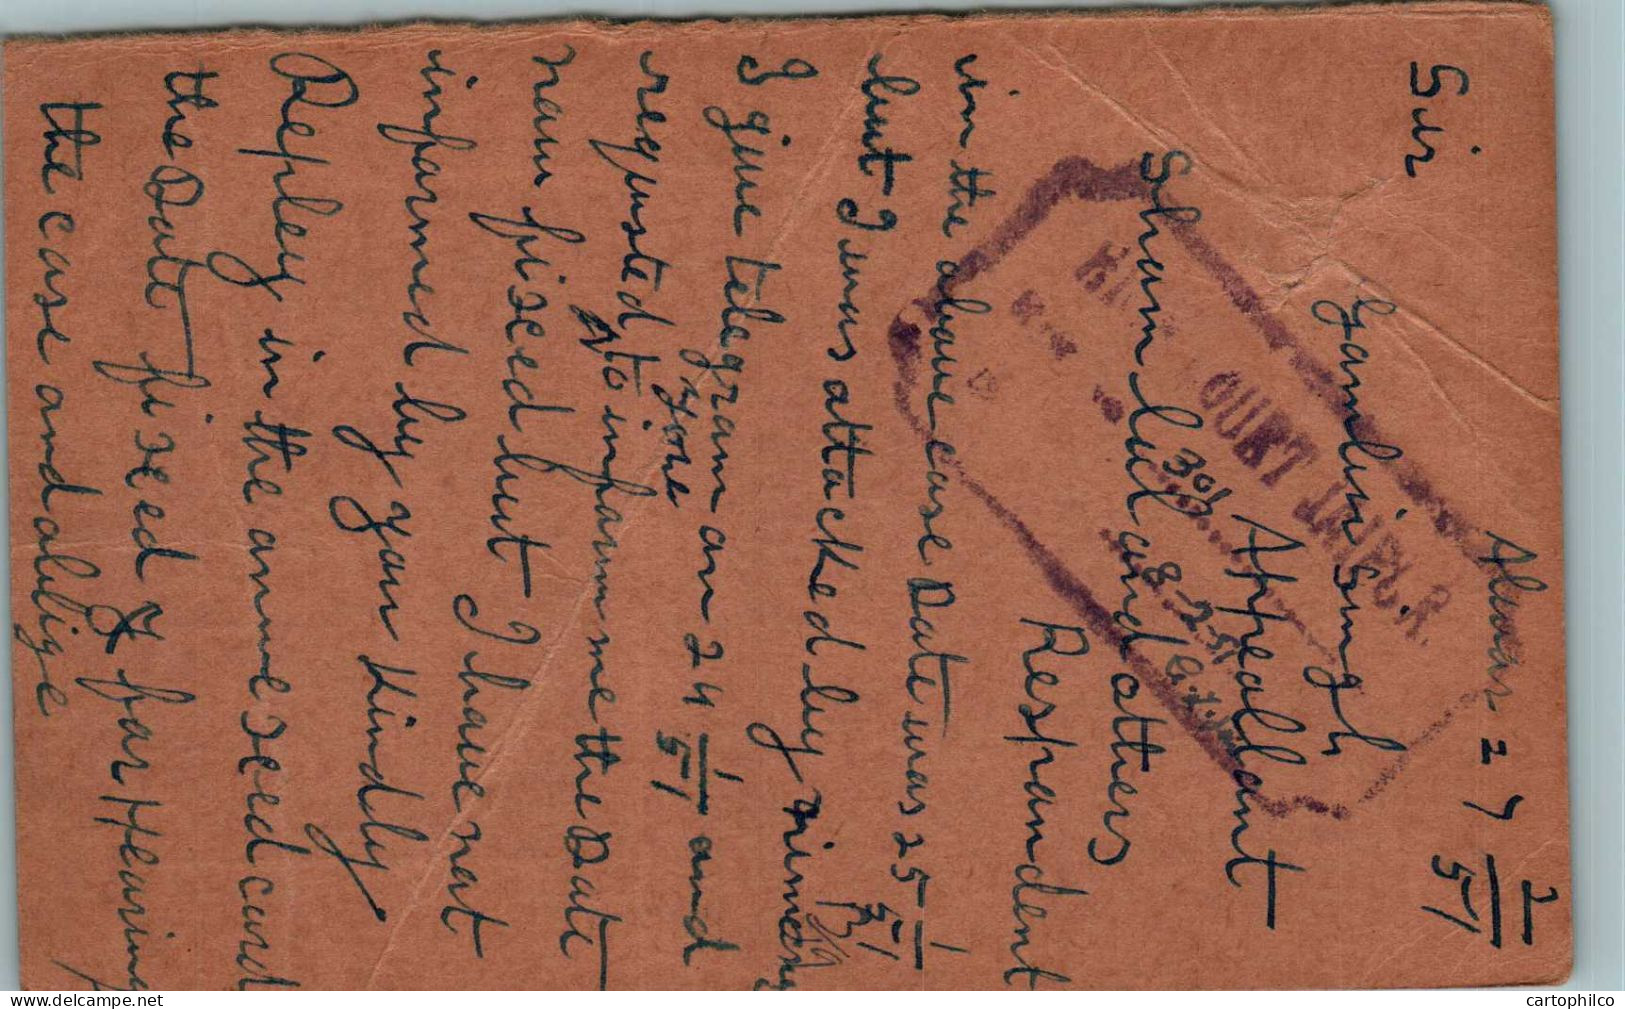 Alwar 27 2/51
Sir
Gambir Singh
Appeallant
Sham lal and others
Respondent
in the above case Date was 25 1/51
but I was attacked by
I give telegram on 24 1/51 and
requsted you to inform me the Date
now fixed but I have not
informed by you kindly
Repley in the annexeed card
the Date fixed for Hearing
the case and oblige
COURT JAIPUR
8-2-51
cartophilco